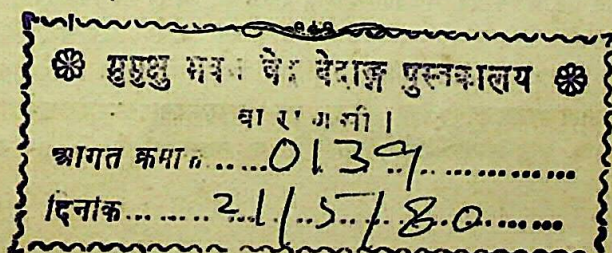 ❀ मुमुक्षु भवन वेद वेदाङ्ग पुस्तकालय ❀
वाराणसी।
आगत क्रमांक.....0139...............
दिनांक........21/5/80.........